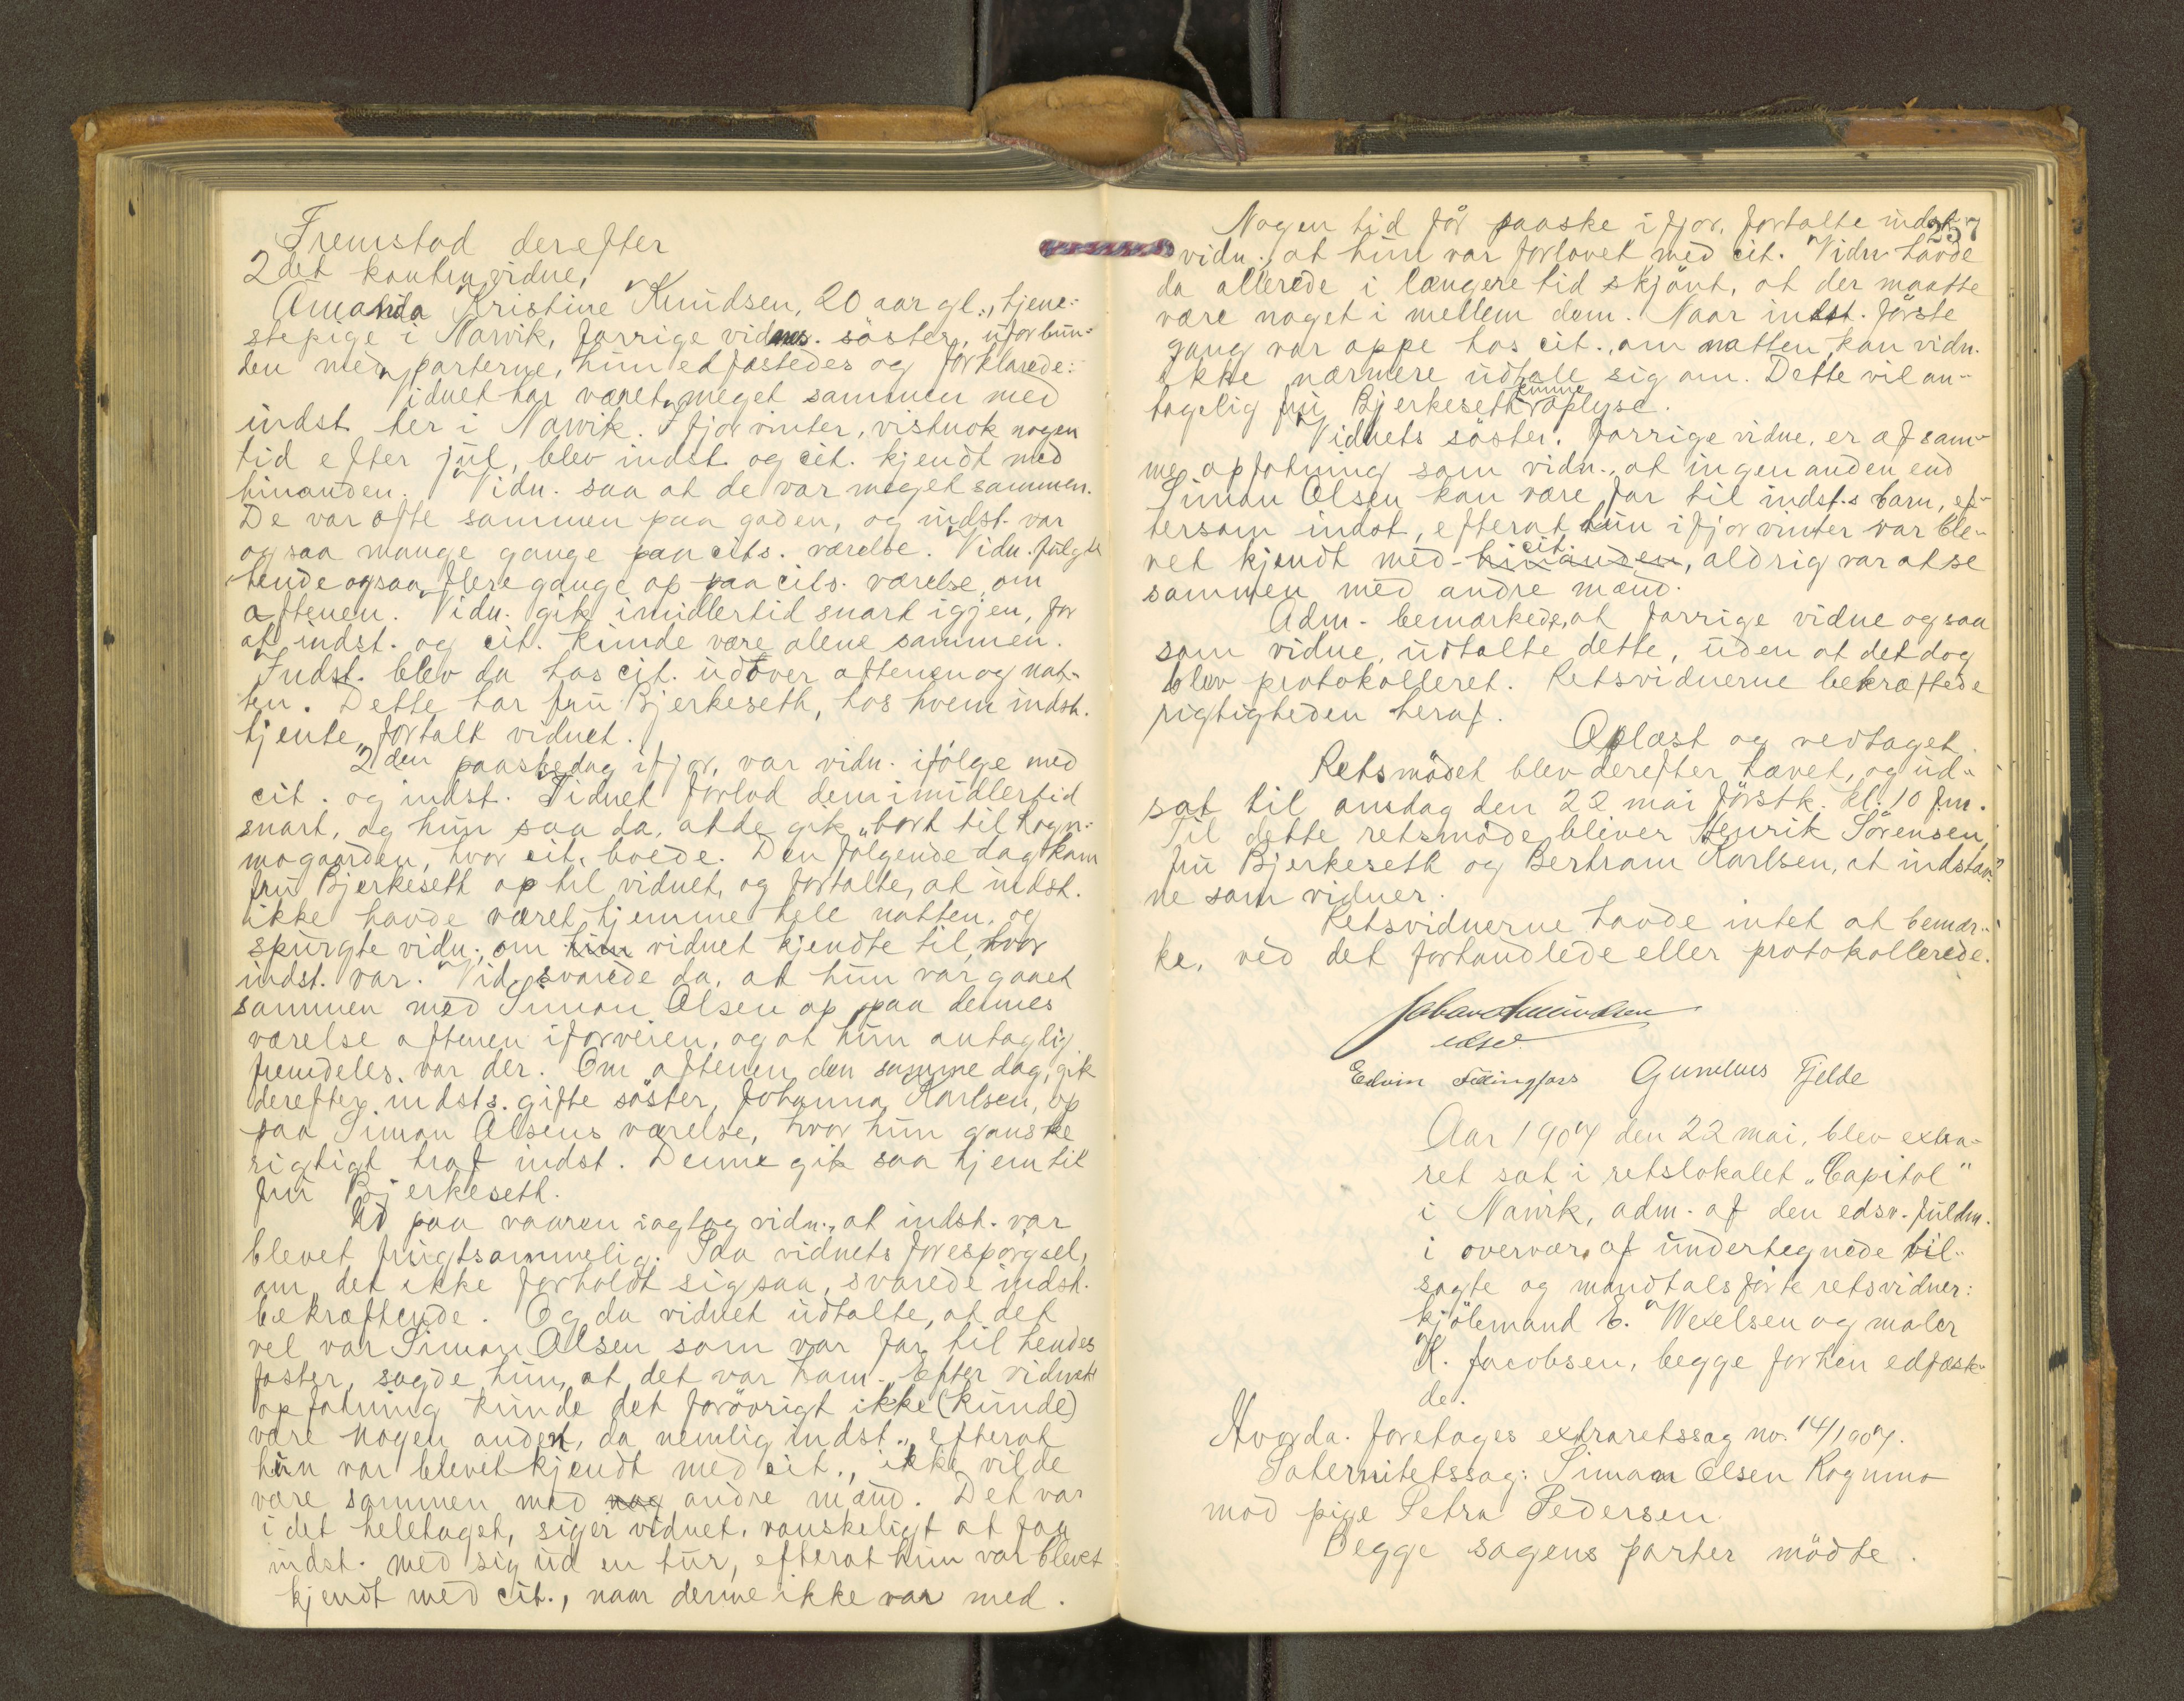 Fremstod derefter
2det kontravidne,
Amanda Kristine Knudsen, 20 aar gl., tjene-
stepige i Narvik, forrige vidnes. söster, uforbun-
den med parterne, hun edfæstedes og forklarede:
Vidnet har været meget sammen med
indst. her i Narvik. Ifjor vinter, vistnok nogen
tid efter jul, blev indst. og cit. kjendt med
hinanden. Vidn. saa at de var meget sammen.
De var ofte sammen paa gaden, og indst. var
ogsaa mange gange paa cits. værelse. Vidn. fulgte
hende ogsaa flere gange op paa cits. værelse om
aftenen. Vidn. gik imidlertid snart igjen, for
at indst. og cit. kunde være alene sammen.
Indst. blev da hos cit. udover aftenen og nat-
ten. Dette har fru Bjerkeseth, hos hvem indst.
tjente, fortalt vidnet.
2den paaskedag ifjor, var vidn. ifölge med
cit. og indst. Vidnet forlod dem imidlertid
snart, og hun saa da, at de gik „bort til Rogn-
mogaarden, hvor cit. boede. Den fölgende dag kom
fru Bjerkeseth op til vidnet, og fortalte, at indst.
ikke havde været hjemme hele natten, og
spurgte vidn., om hun vidnet kjendte til, hvor
indst. var. Vid. svarede da, at hun var gaaet
sammen med Simon Olsen op paa dennes
værelse aftenen iforveien, og at hun antaglig
fremdeles var der. Om aftenen den samme dag, gik
derefter indsts. gifte söster, Johanna Karlsen, op
paa Simon Olsens værelse, hvor hun ganske
rigtigt traf indst. Denne gik saa hjem til
fru Bjerkeseth.
Ud paa vaaren iagtog vidn., at indst. var
blevet frugtsommelig. Paa vidnets forespörgsel,
om det ikke forholdt sig saa, svarede indst.
bekræftende. Og da vidnet udtalte, at det
vel var Simon Olsen som var far til hendes
foster, sagde hun, at det var ham. Efter vidnets
opfatning kunde det forövrigt ikke (kunde)
være nogen anden, da nemlig indst., efterat
hun var blevet kjendt med cit., ikke vilde
være sammen med nog andre mænd. Det var
i det heletaget, siger vidnet, vanskeligt at faa
indst. med sig ud en tur, efterat hun var blevet
kjendt med cit., naar denne ikke var med.
257
Nogen tid för paaske i fjor, fortalte indst.
vidn., at hun var forlovet med cit. Vidn. havde
da allerede i længere tid skjönt, at der maatte
være noget i mellem dem. Naar indst. förste
gang var oppe hos cit., om natten, kan vidn.
ikke nærmere udtale sig om. Dette vil an-
tagelig fru Bjerkeseth kunne oplyse.
Vidnets söster, forrige vidne, er af sam-
me opfatning som vidn., at ingen anden end
Simon Olsen kan være far til indst.s barn, ef-
tersom indst, efterat hun i fjor vinter var ble-
vet kjendt med hinanden cit., aldrig var at se
sammen med andre mænd.
Adm. bemærkede, at forrige vidne ogsaa
som vidne, udtalte dette, uden at det dog
blev protokolleret. Retsvidnerne bekræftede
rigtigheden heraf.
Oplæst og vedtaget.
Retsmödet blev derefter hævet, og ud-
sat til onsdag den 22 mai förstk. kl. 10 fm.
Til dette retsmöde bliver Henrik Sörensen,
fru Bjerkeseth og Bertram Karlsen, at indstæv-
ne som vidner.
Retsvidnerne havde intet at bemær-
ke, ved det forhandlede eller protokollerede.
edsv.
Edvin Gunelius Fjelde
Aar 1907 den 22 mai, blev extra-
ret sat i retslokalet „Capitol"
i Narvik, adm. af den edsv. fuldm.
i overvær af undertegnede til-
sagte og mandtalsförte retsvidner:
kjölemand E. Wexelsen og maler
K. Jacobsen, begge forhen edfæste-
de.
Hvorda. foretoges extraretssag no. 14/1907.
Paternitetssag: Simon Olsen Rognmo
mod pige Petra Pedersen
Begge sagens parter mödte.